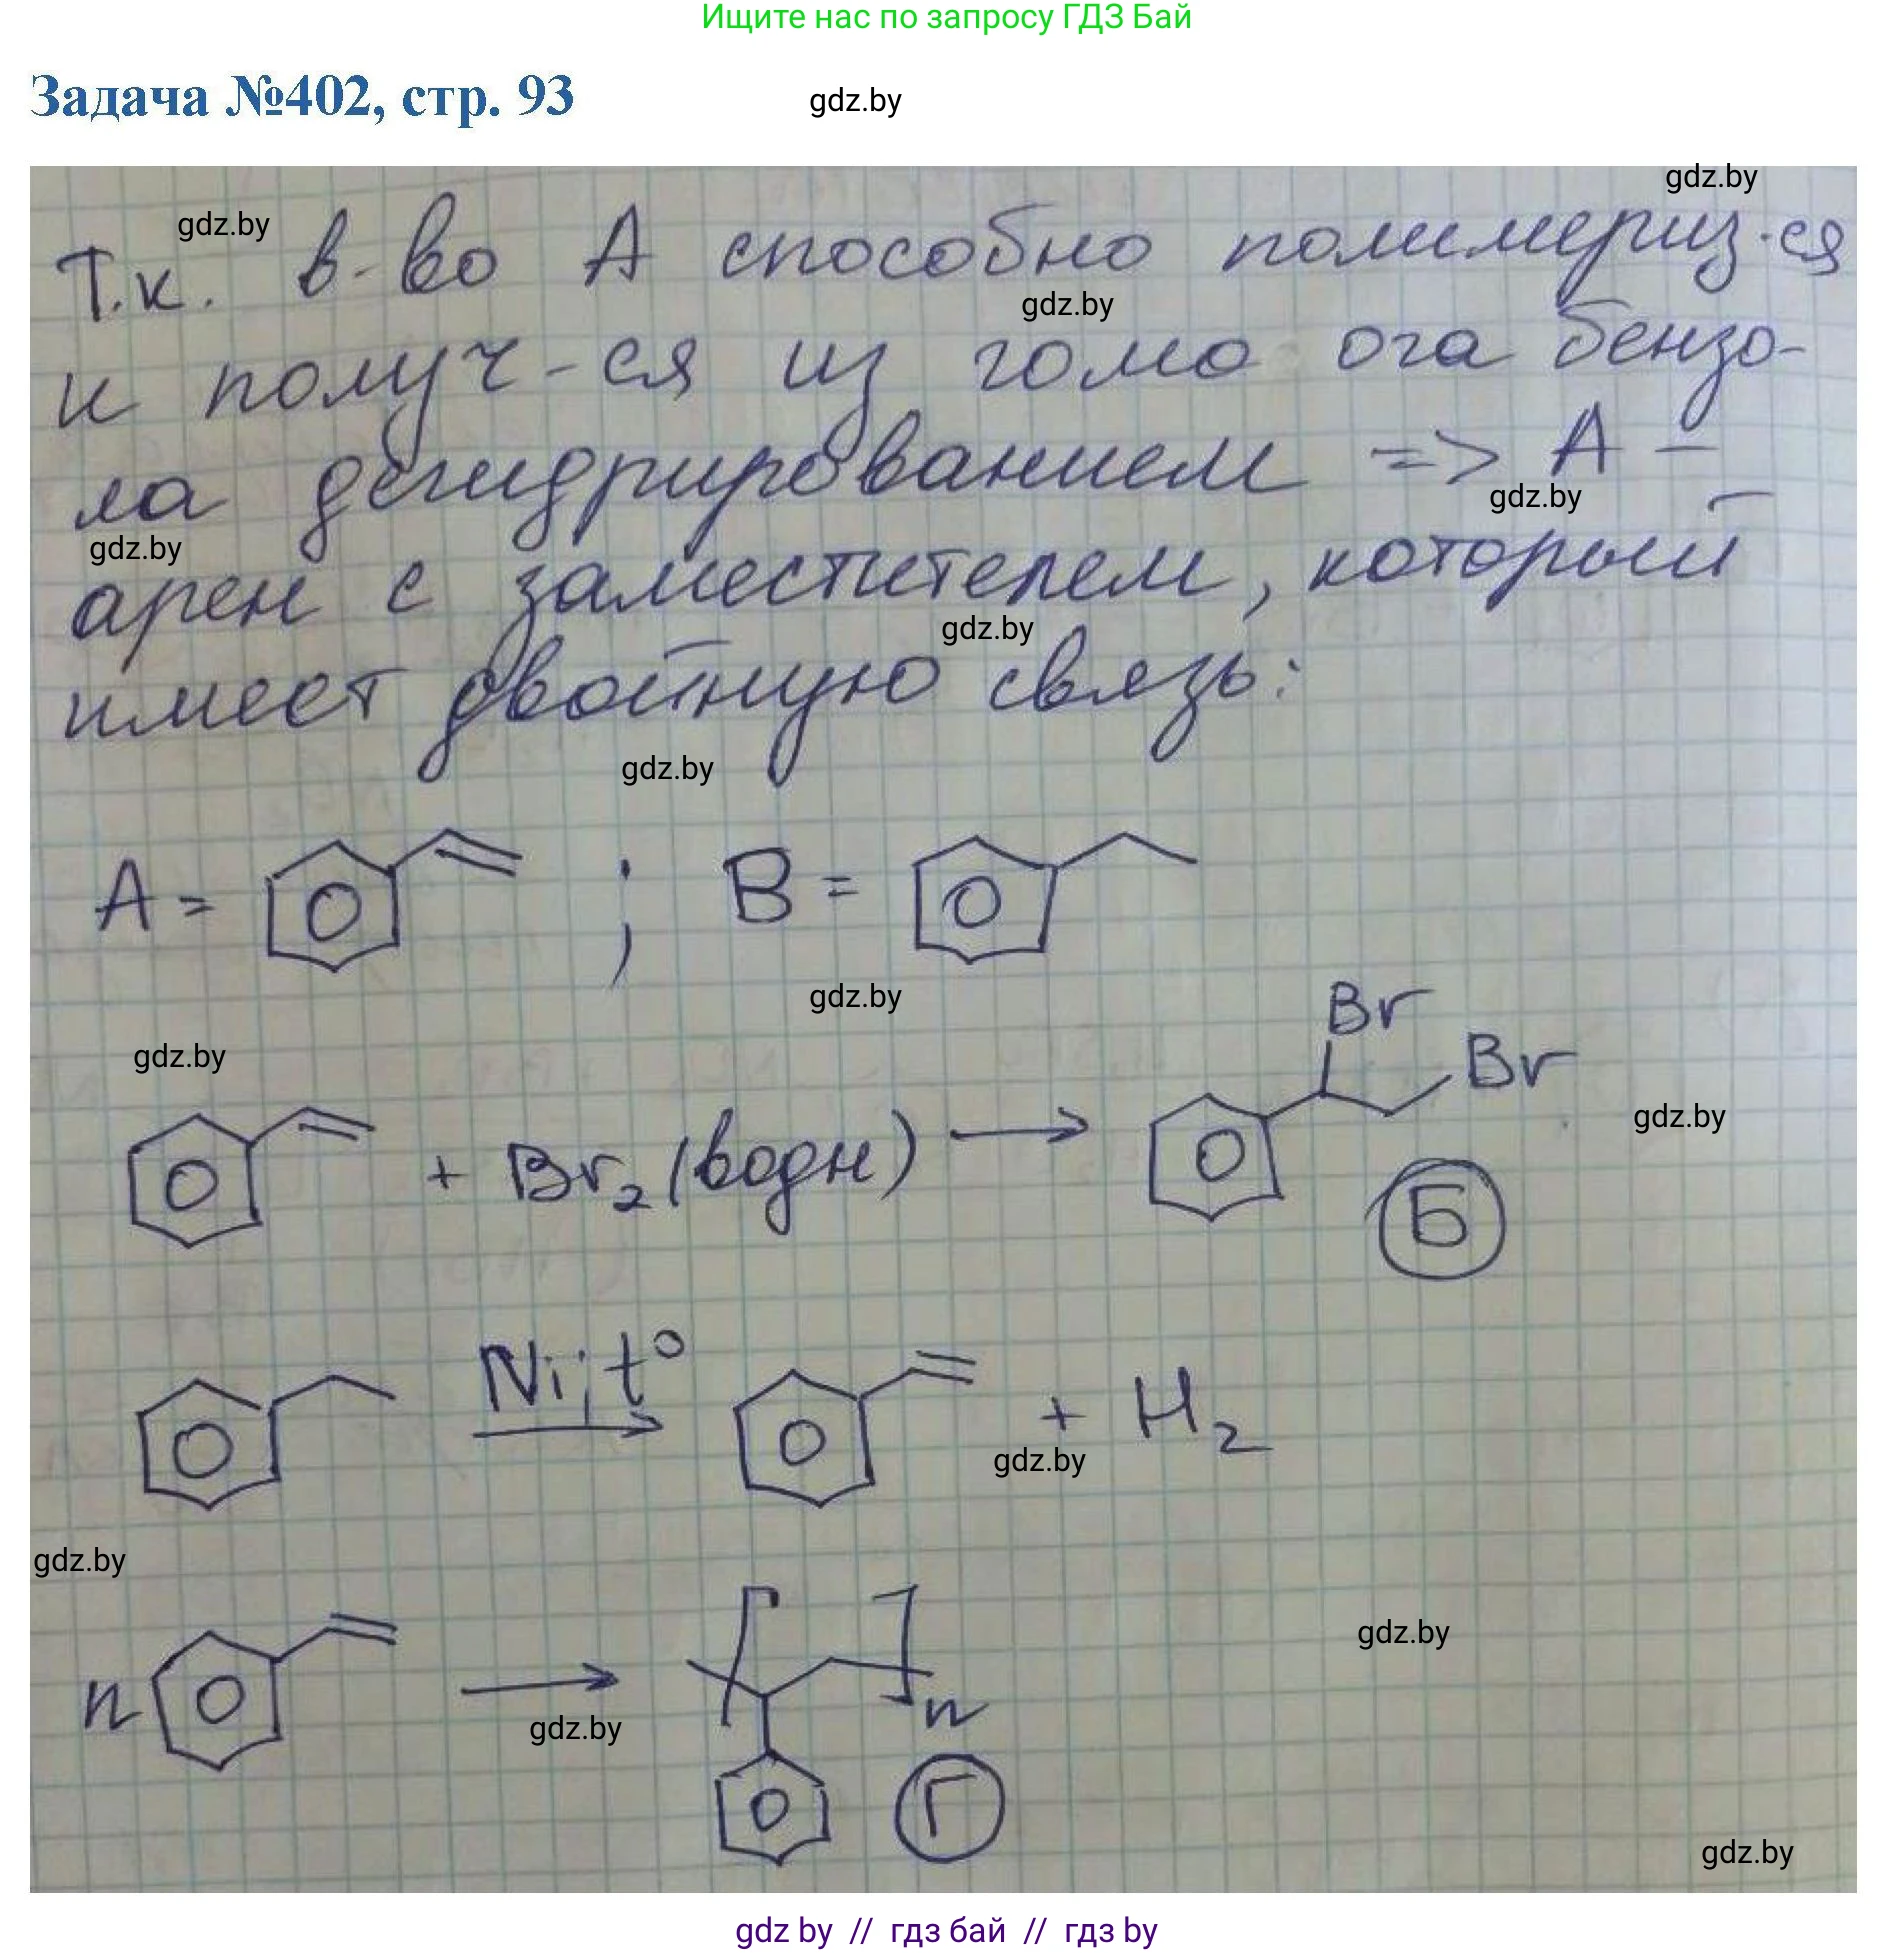 Ищите нас по запросу ГДЗ Бай
Задача №402, стр. 93
gdz.by
gdz.by
gdz.by
Т.к. в-во А способно полимериз-ся
gdz.by
и получ-ся из гомо ога бензо-
ла дегидрированием => А –
gdz.by
gdz.by
арен с заместителем, который
gdz.by
имеет двойную связь:
gdz.by
А = ; В =
gdz.by
gdz.by
Br
Br
gdz.by
+ Br2 (водн) →
Б
Ni; t°
→ + H2
gdz.by
gdz.by
n → [ ]n
gdz.by
gdz.by
Г
gdz.by
gdz by // гдз бай // гдз by